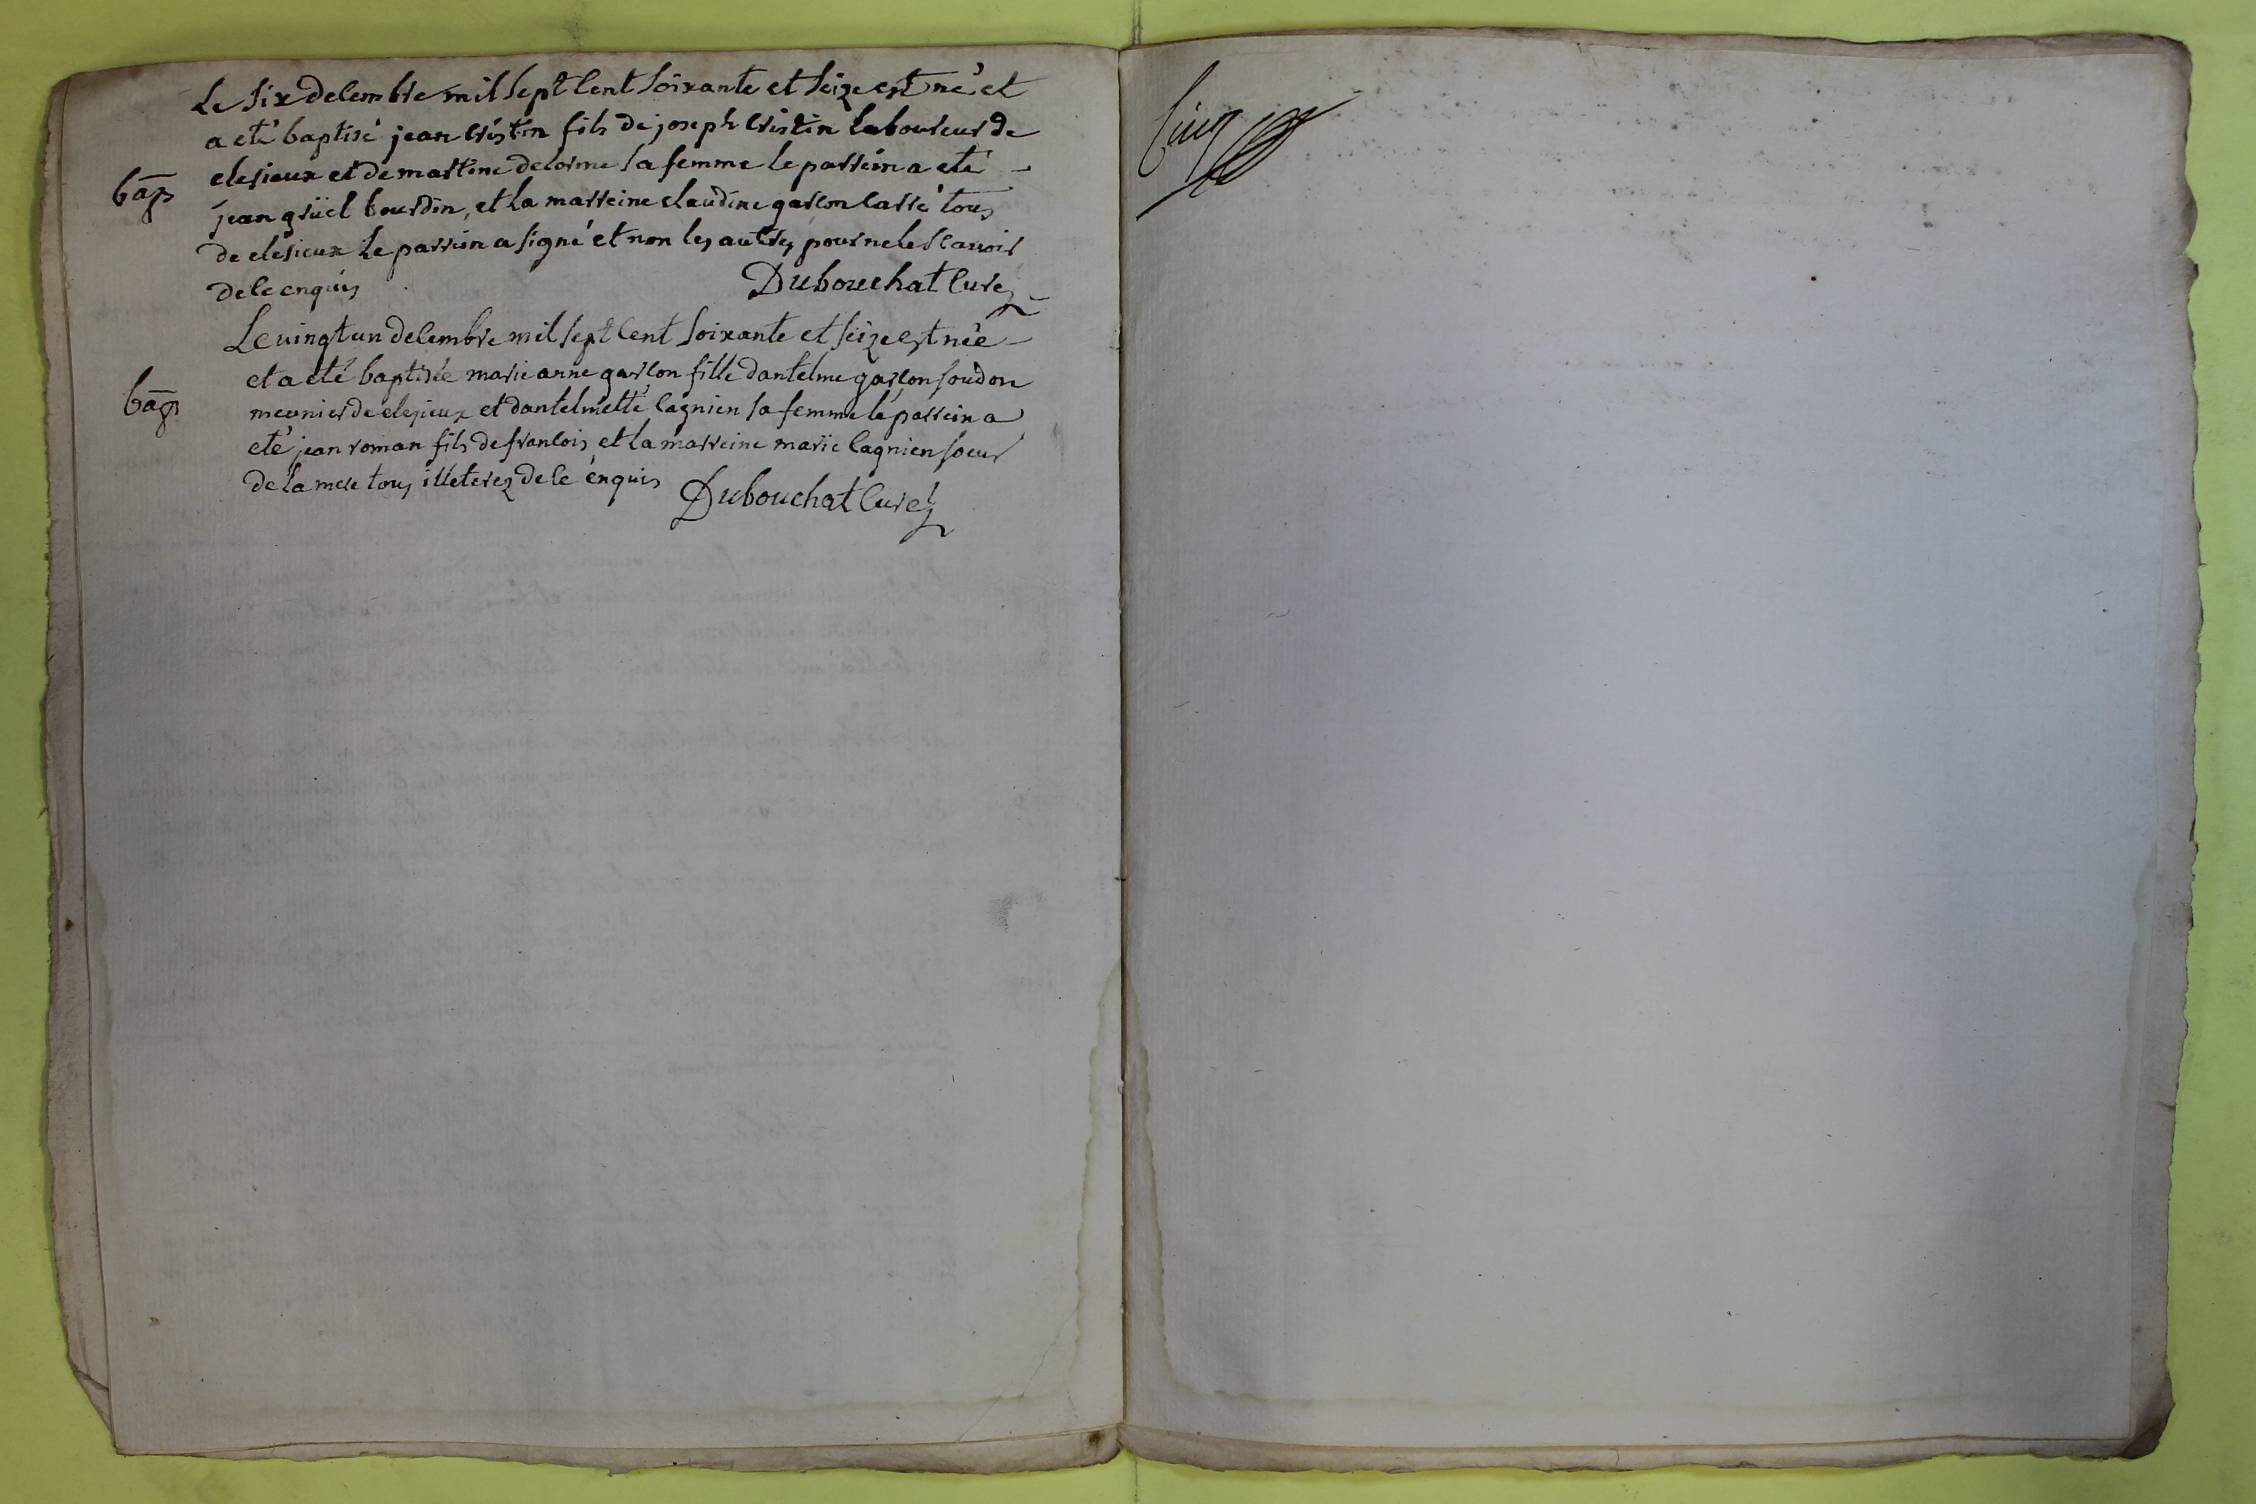 Le six decembre mil sept cent soixante et seize est né et
a eté baptisé jean cristin fils de joseph cristin laboureur de
clesieux et de martine delorme sa femme le parrein a eté
bap
jean gruel bourdin, et la marreine claudine garcon cassé tous
de clesieux le parrein a signé et non les autres pour ne le scavoir
de ce enquis
Dubouchat curé
Le vingt un decembre mil sept cent soixante et seize est née
et a eté baptisée marie anne garcon fille dantelme garcon
bap
meunier de clesieux et dantelmette cagnien sa femme le parrein a
eté jean roman fils de francois et la marreine marie cagnien soeur
de la mere tous illeterez de ce enquis
Dubouchat curé
cinq